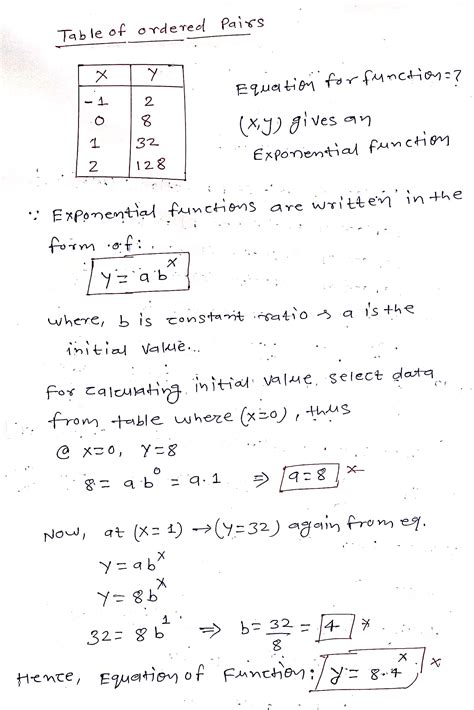 Table of ordered Pairs
X Y
-1 2
0 8
1 32
2 128
Equation for function=?
(x,y) gives an
Exponential function
∵ Exponential functions are written in the
form of:
y = ab^x
where, b is constant ratio & a is the
initial value...
for calculating initial value select data
from table where (x=0), thus
@ x=0, y=8
8 = a.b^0 = a.1 ⇒ a=8
Now, at (x=1) → (y=32) again from eq.
y = ab^x
y = 8b^x
32 = 8b^1 ⇒ b = 32/8 = 4
Hence, Equation of Function: y = 8.4^x